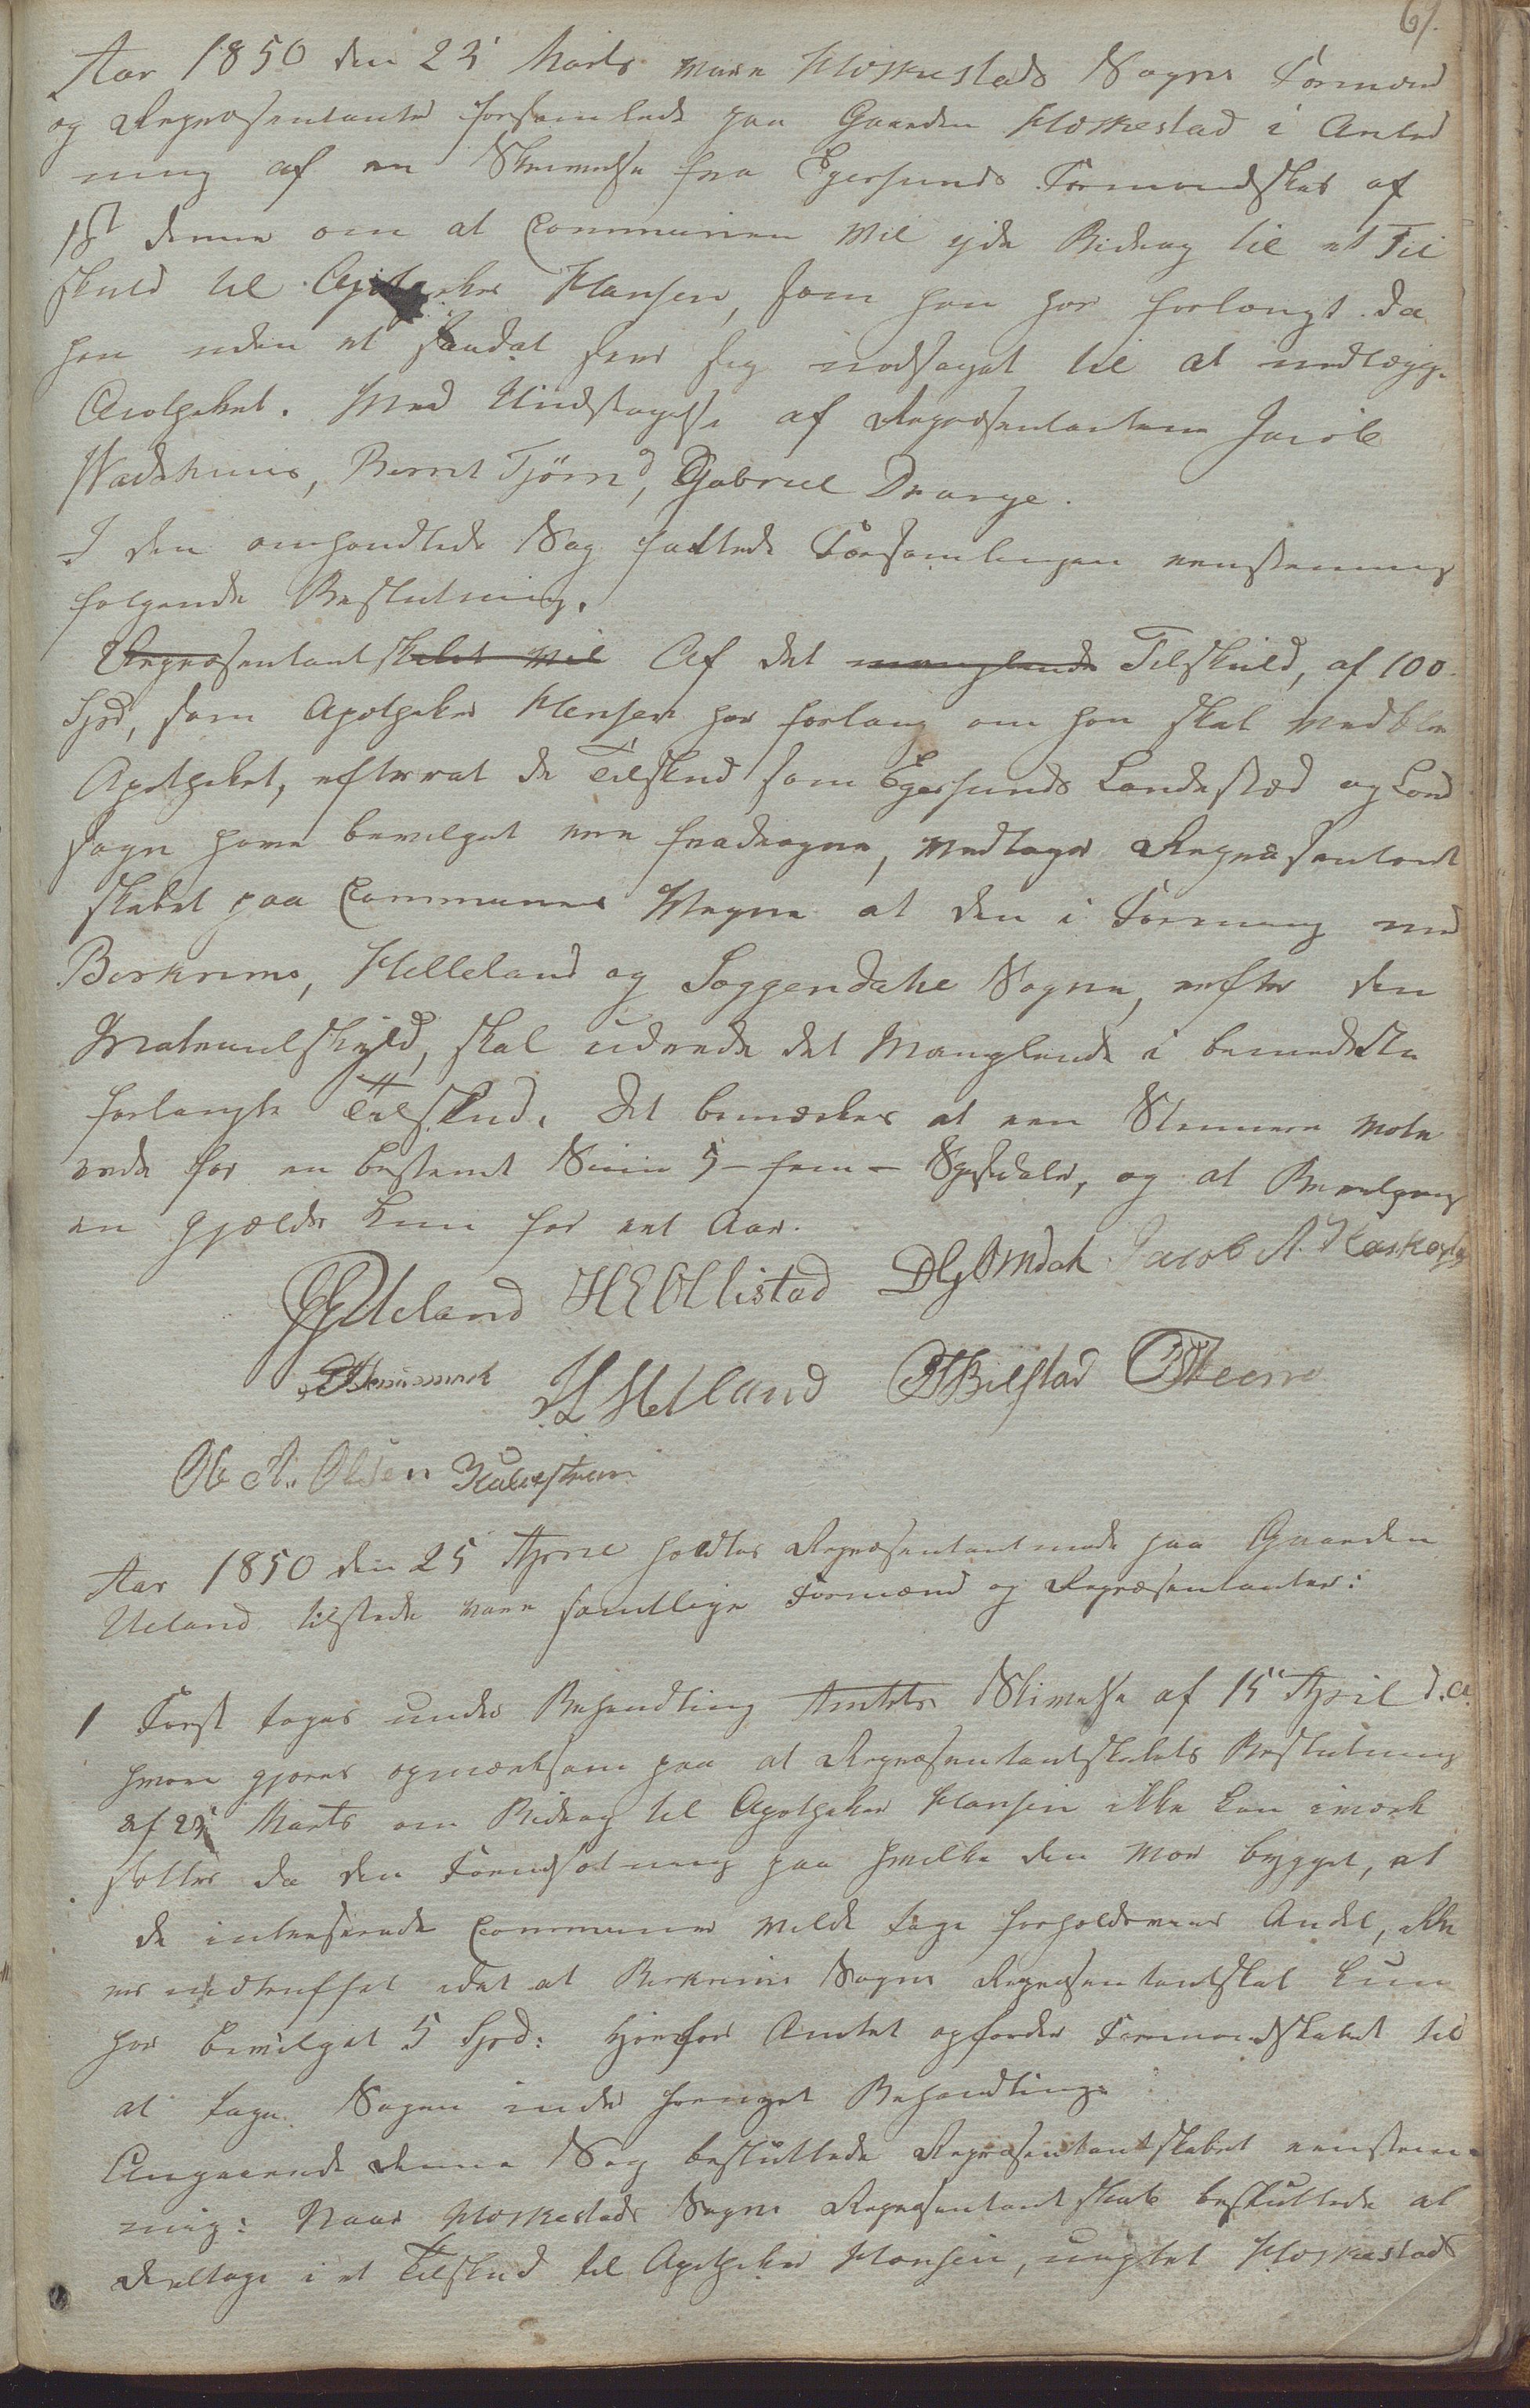 61.
Aar 1850 den 23' Marts vare Hæskestads Sogns Formænd
og Repræsentanter forsamlede paa Gaarden Hæskestad i Anled
ning af en Skrivelse fra Egersunds Formandskab af
18de denne om at Communen vil yde Bidrag til et Til
skuld til Apotheker Hansen, som han har forlangt da
han uden et saadat seer sig nødsaget til at nedlægge
Apotheket. Med Undtagelse af Repræsentanterne Jacob
Wadshuus, Bernt Tjørn, Gabriel Drange.
I den omhandlede Sag fattede Forsamlingen eenstemmig
følgende Beslutning.
Repræsentantskabet vil Af det manglende Tilskuld, af 100
Spd, som Apotheker Hansen har forlang om han skal vedblive
Apotheket, efterat de Tilskud som Egersunds Ladested og Land
sogn have bevilget ere fradragne, vedtager Repræsentant
skabet paa Communens Vegne at den i Forening med
Birkrems, Helleland og Soggendahls Sogne, efter den
Matrculskyld, skal udrede det Manglende i bemeldte
forlangte Tilskud. Det bemærkes at een Stemme vote
rede for en bestemt Suum 5 - fem - Spesidaler, og at Bevilgning
en gjælder kun for eet Aar.
Ueland HEOllistad DGOmdal Jacob A.
H Hetland Bilstad
Ole A. Olsen
Aar 1850 den 25 April holdtes Repræsentantmøde paa Gaarden
Ueland tilstede vare samtlige Formænd og Repræsentanter:
1 Først toges under Behandling Amtets Skrivelse af 15' April d.A.
hvori gjøres opmærksom paa at Repræsentantskabets Beslutning
af 23' Marts om Bidrag til Apotheker Hansen ikke kan iværk
sættes da den Forudsætning paa hvilke den var bygget, at
de interserede Communer vilde tage forholdsviis Andel, ikke
er indtruffet idet at Birkrems Sogns Repræsentantskab kun
har bevilget 5 Spd: hvorfor Amtet opfordrer Formandskabet til
at tage Sagen under fornyet Behandling:
Angaaende denne Sag besluttede Repræsentantskabet eenstem
mig: Naar Hæskestads Sogns Repræsentantskab besluttede at
deeltage i et Tilskud til Apotheker Hansen, uagtet Hæskestads